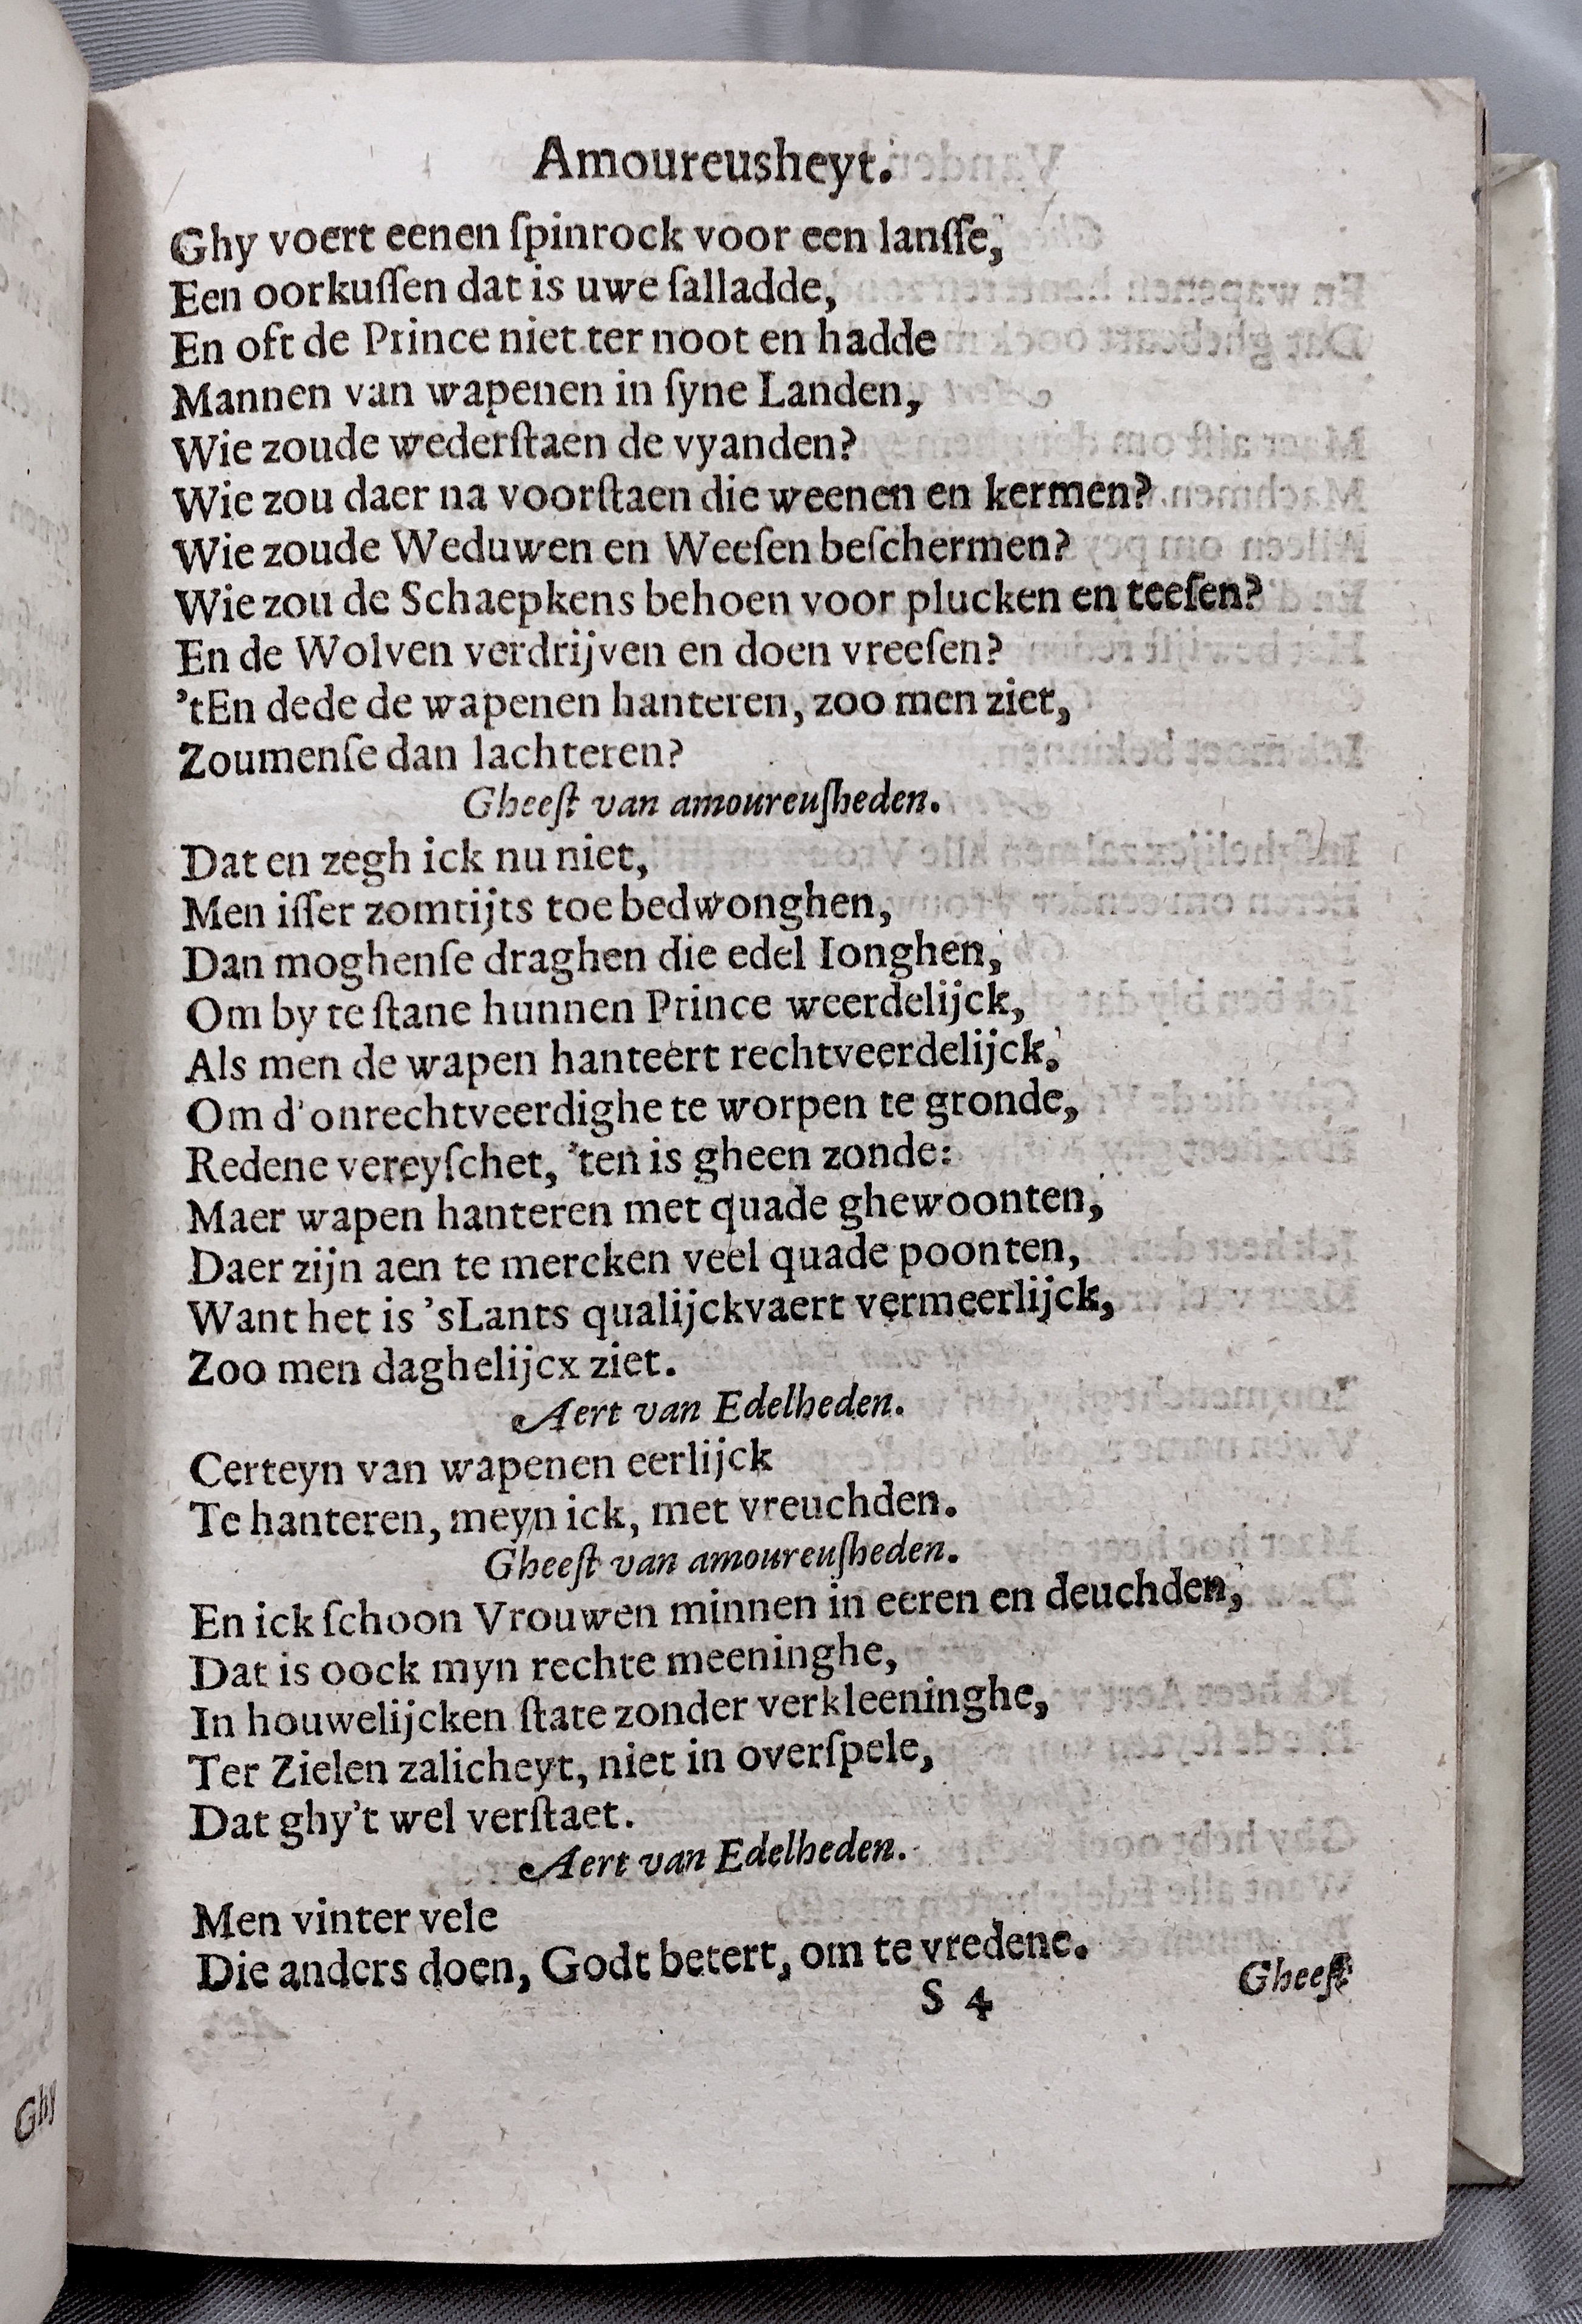 Amoureusheyt.
Ghy voert eenen ſpinrock voor een lanſſe,
Een oorkuſſen dat is uwe ſalladde,
En oft de Prince niet ter noot en hadde
Mannen van wapenen in ſyne Landen,
Wie zoude wederſtaen de vyanden?
Wie zou daer na voorſtaen die weenen en kermen?
Wie zoude Weduwen en Weeſen beſchermen?
Wie zou de Schaepkens behoen voor plucken en teeſen?
En de Wolven verdrijven en doen vreeſen?
'tEn dede de wapenen hanteren, zoo men ziet,
Zoumenſe dan lachteren?
Gheeſt van amoureuſheden.
Dat en zegh ick nu niet,
Men iſſer zomtijts toe bedwonghen,
Dan moghenſe draghen die edel Ionghen,
Om by te ſtane hunnen Prince weerdelijck,
Als men de wapen hanteert rechtveerdelijck,
Om d'onrechtveerdighe te worpen te gronde,
Redene vereyſchet, 'ten is gheen zonde:
Maer wapen hanteren met quade ghewoonten,
Daer zijn aen te mercken veel quade poonten,
Want het is 'sLants qualijckvaert vermeerlijck,
Zoo men daghelijcx ziet.
Aert van Edelheden.
Certeyn van wapenen eerlijck
Te hanteren, meyn ick, met vreuchden.
Gheeſt van amoureuſheden.
En ick ſchoon Vrouwen minnen in eeren en deuchden,
Dat is oock myn rechte meeninghe,
In houwelijcken ſtate zonder verkleeninghe,
Ter Zielen zalicheyt, niet in overſpele,
Dat ghy't wel verſtaet.
Aert van Edelheden.
Men vinter vele
Die anders doen, Godt betert, om te vredene.
S 4
Gheeſt
Ghy